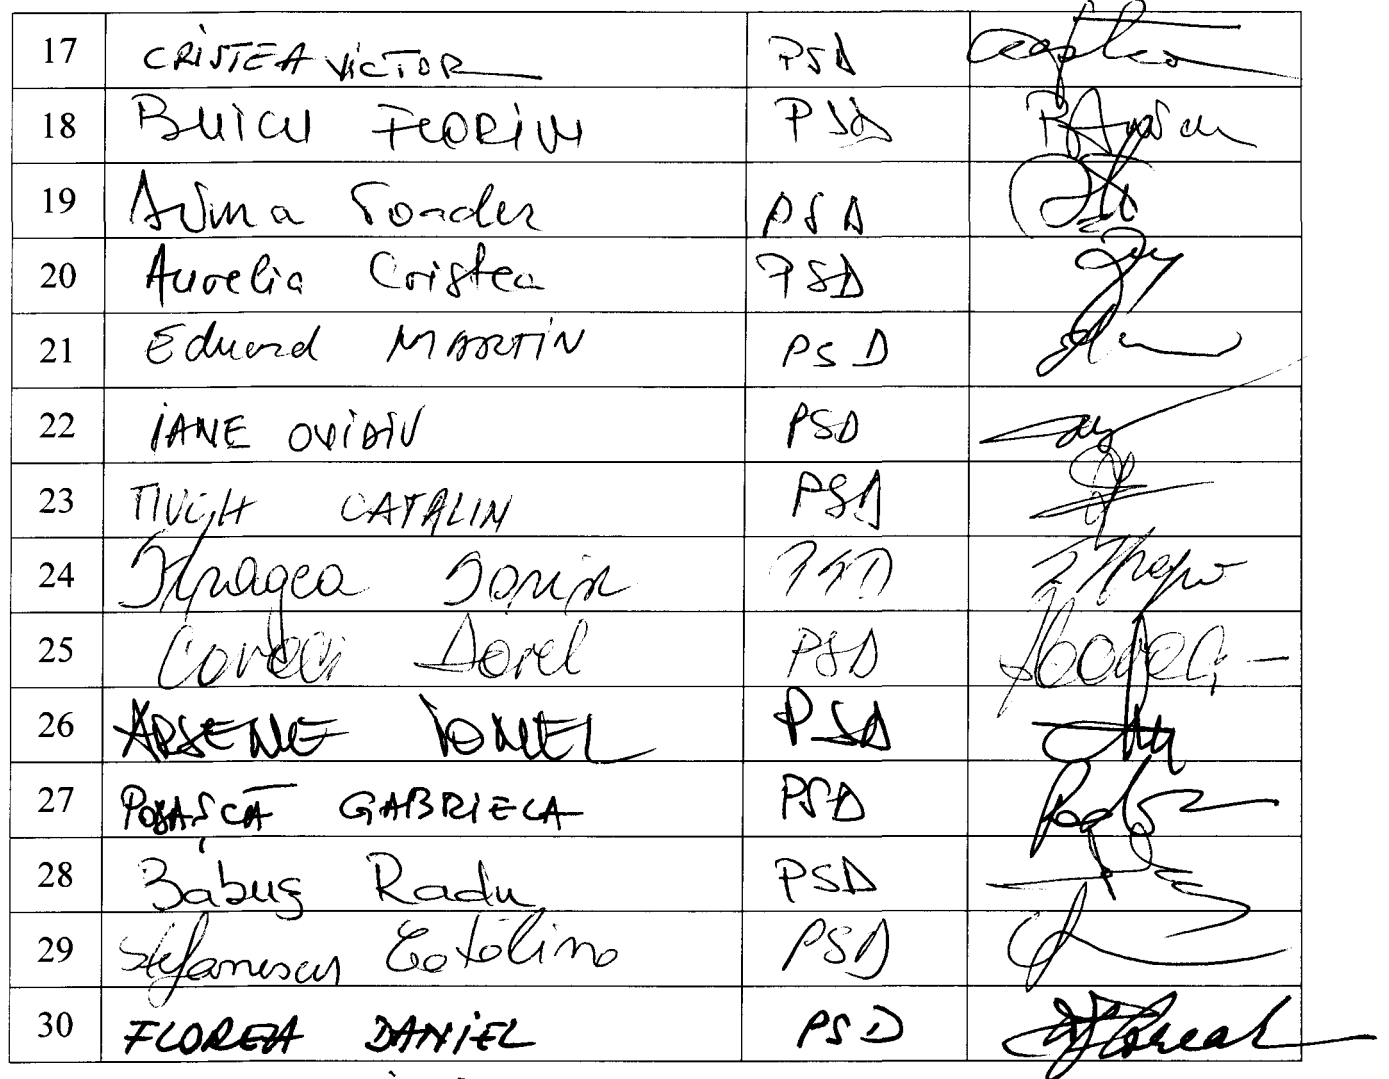 17 CRISTEA VICTOR PSD
18 BUICU FLORIN PSD
19 Toader PSD
20 Aurelia Cristea PSD
21 Eduard MARTIN PSD
22 IANE OVIDIU PSD
23 CATALIN PSD
24 Sorin PSD
25 Covaci Dorel PSD
26 ARSENE IONEL PSD
27 PODAȘCĂ GABRIELA PSD
28 Băbuș Radu PSD
29 Ștefănescu Cătălina PSD
30 FLOREA DANIEL PSD